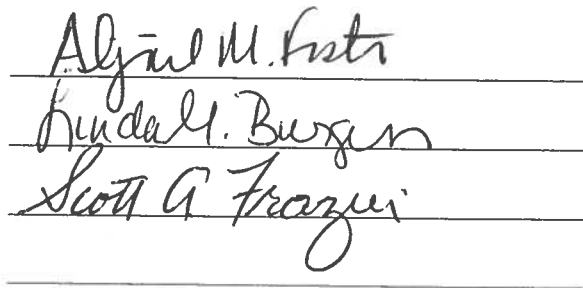 M. Foster
Linda M. Burgess
Scott A Frazier